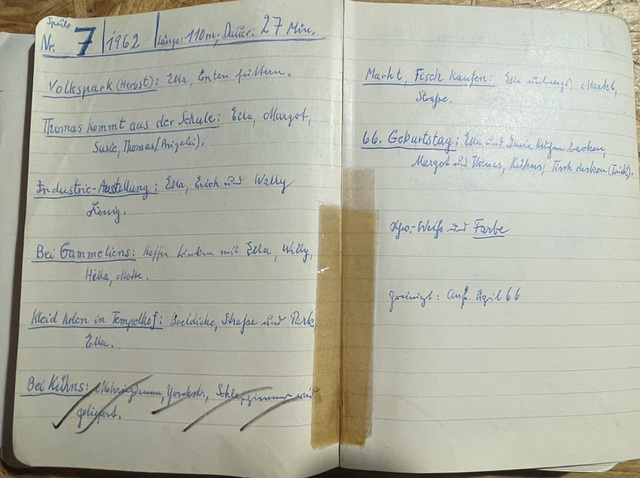 Spule
Nr. 7 | 1962 | Länge: 110m, Dauer: 27 Min.
Volkspark (Herbst): Ella, Enten füttern.
Thomas kommt aus der Schule: Ella, Margot,
Susie, Thomas
Industrie-Austellung: Ella, Erich und Willy
König.
Bei Gammeliens: Koffer mit Ella, Willy,
Hella,
Kleid holen in Tempelhof: Boeldicke, Straße und Park,
Ella.
Bei Kühns: Schlafzimmer wird
geliefert.
Markt, Fisch kaufen: Ella unterwegs, Markt,
Straße.
66. Geburtstag: Ella und Susie backen,
Margot und Kühns, Tisch decken
Schw.-Weiß und Farbe
gereinigt: Anf. April 66